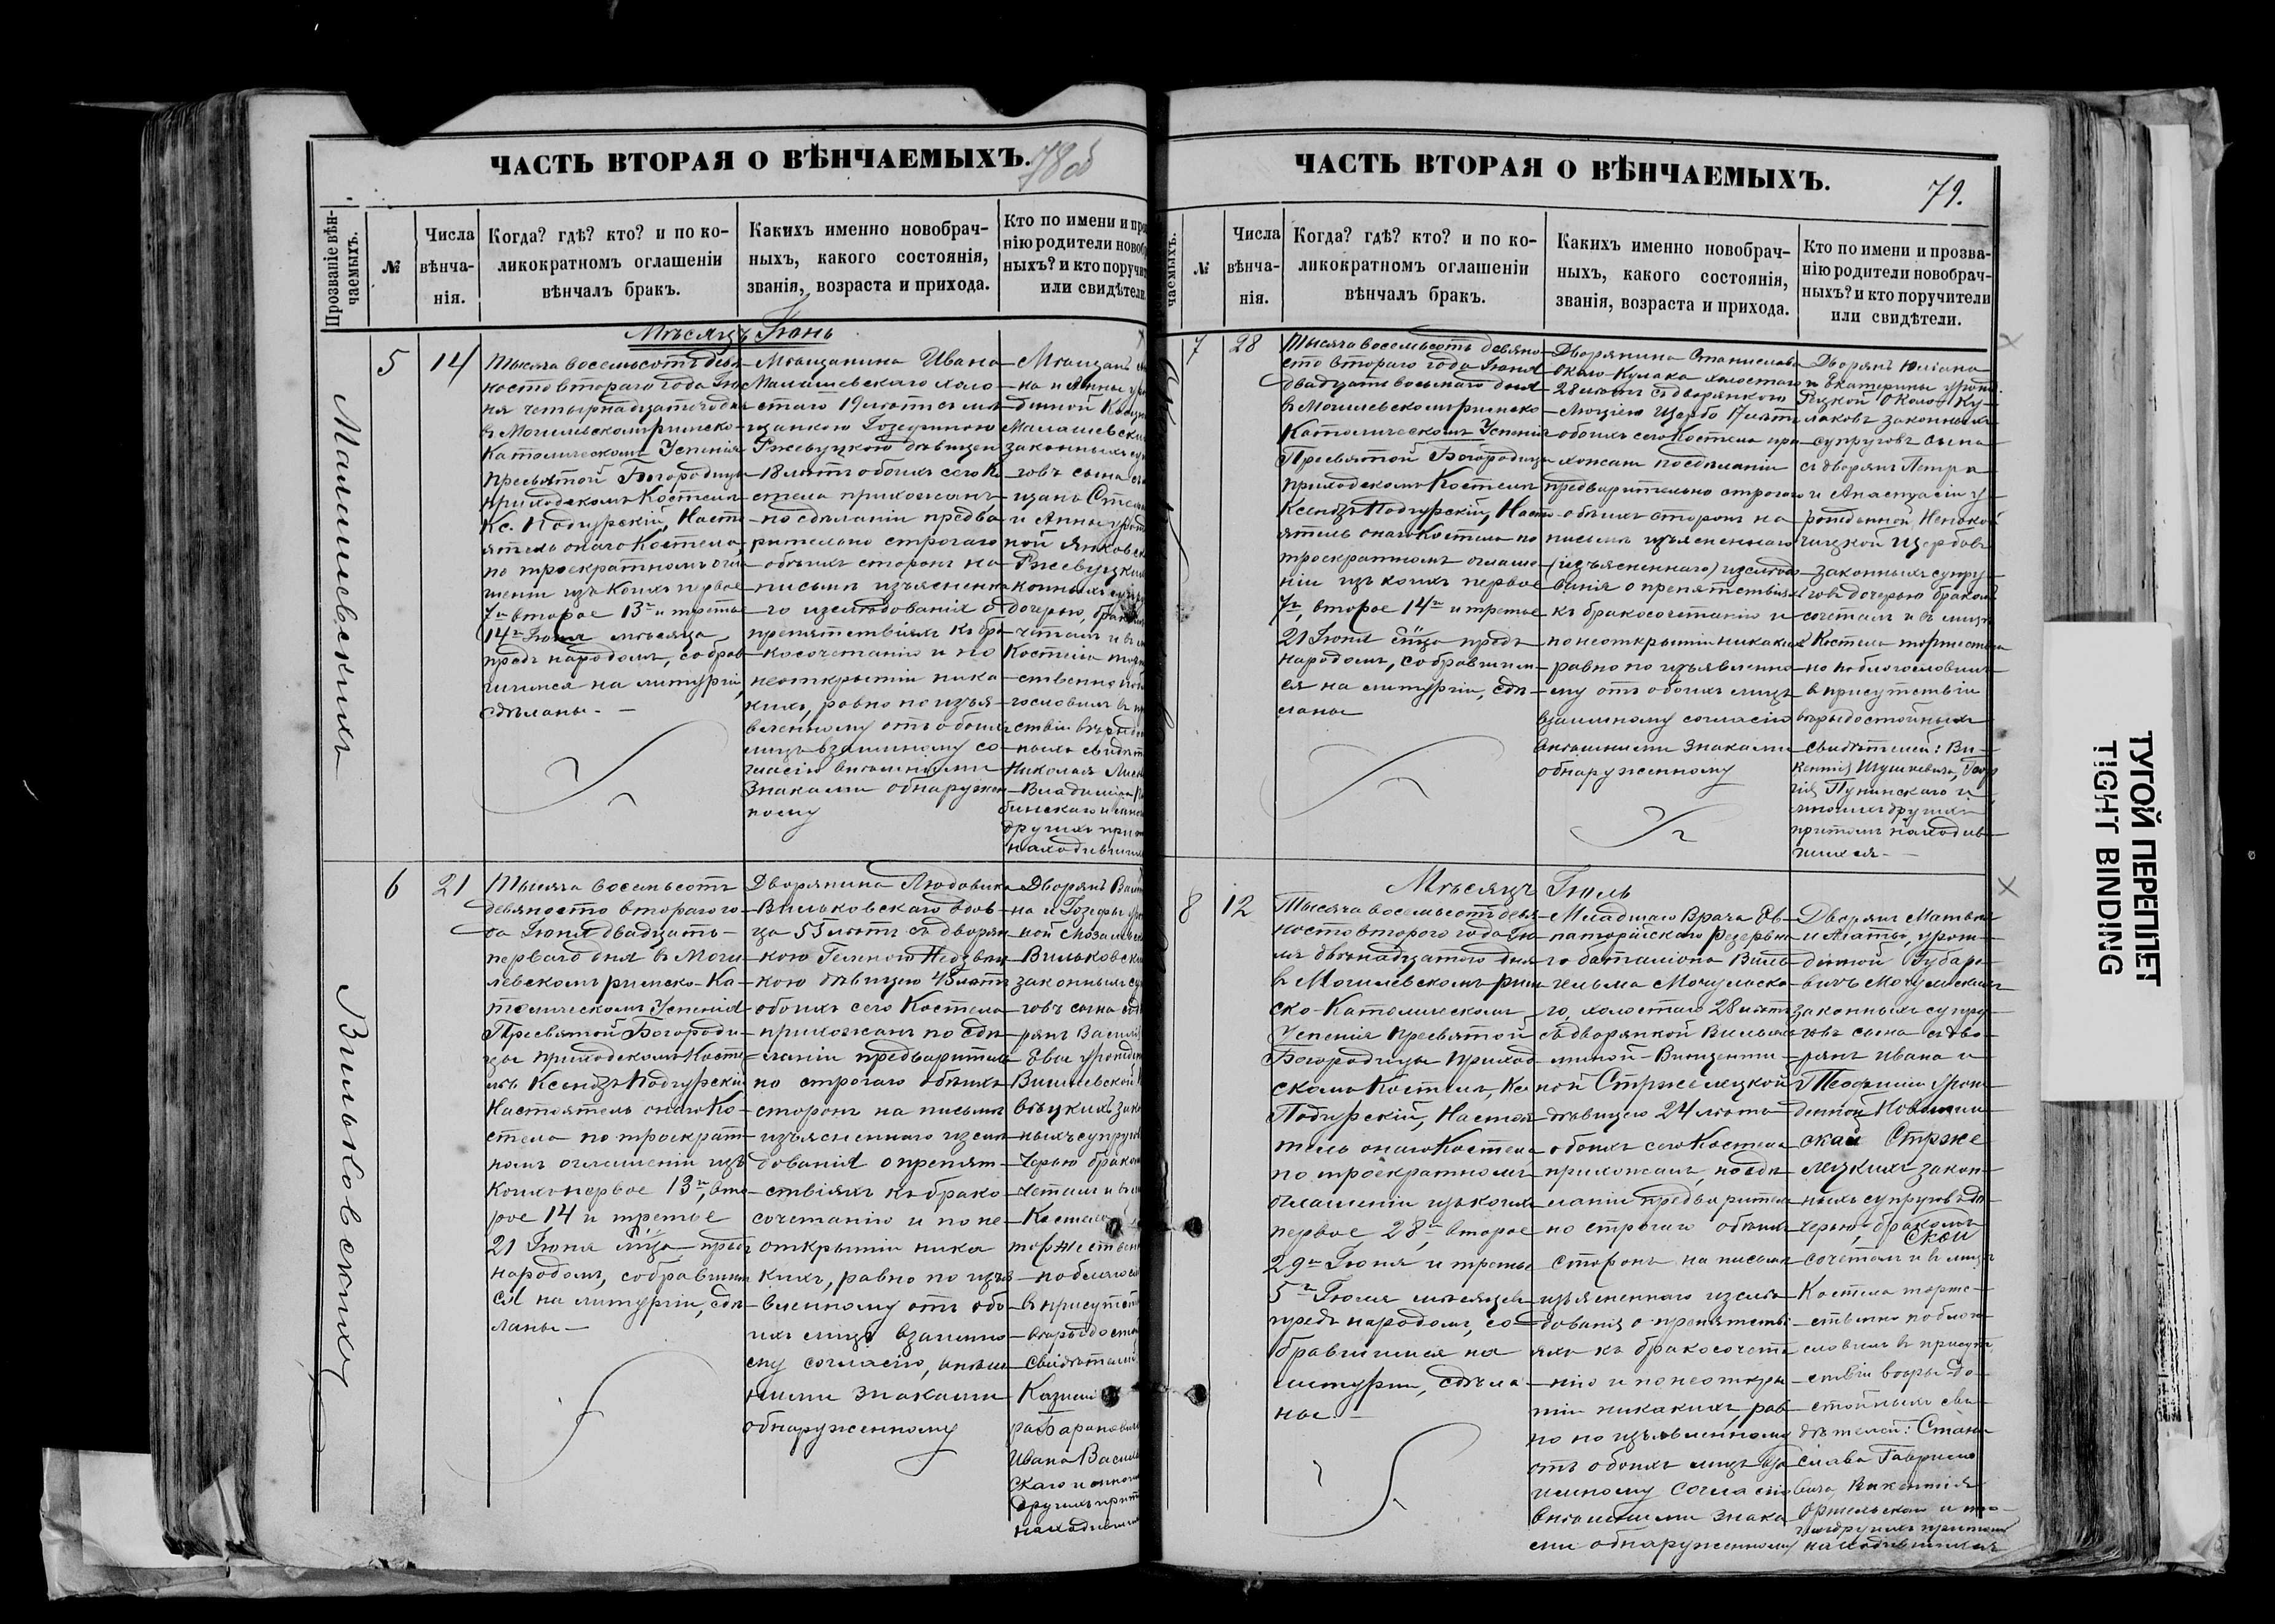 ЧАСТЬ ВТОРАЯ О ВѢНЧАЕМЫХЪ.
78 об
Прозваніе вѣн-
чаемыхъ.
№
Числа
вѣнча-
нія.
Когда? гдѣ? кто? и по ко-
ликократномъ оглашеніи
вѣнчалъ бракъ.
Какихъ именно новобрач-
ныхъ, какого состоянія,
званія, возраста и прихода.
Кто по имени и про
нію родители новобр
ныхъ? и кто поручит
или свидѣтели
Мѣсяцъ Іюнь
Малашевскихъ
5
14
Тысяча восемьсотъ девя
носто втораго года Ію
ня четырнадцатаго дня
въ Могилевскомъ римско-
Католическомъ Успенія
Пресвятой Богородицы
приходскомъ Костелѣ
Кс. Подгурскій, Насто
ятель онаго Костела,
по троекратномъ огла
шеніи изъ коихъ первое
7го второе 13го и третье
14го Іюня мѣсяца
предъ народомъ, собрав
шимся на литургіи,
сдѣланы.
Мѣщанина Ивана
Малашевскаго холо
стаго 19 лѣтъ съ мѣ
щанкою Іозефиною
Ржевуцкою дѣвицею
18 лѣтъ обоихъ сего Ко
стела прихожанъ
по сдѣланіи предва
рительно строгаго
обѣихъ сторонъ на
письмѣ изъясненна
го изслѣдованія о
препятствіяхъ къ бра
косочетанію и по
неоткрытіи ника
кихъ, равно по изъя
вленному отъ обоихъ
лицъ взаимному со
гласію внѣшними
знаками обнаружен
ному
Мѣщанъ
на и Анны
Малашевски
законныхъ
говъ сына
щанъ Сте
и Анны
ной Янковск
Ржевуцких
конныхъ
дочерью, бра
четалъ и въ
Костела тор
ственно
гословилъ въ
ствіи
ныхъ свидѣт
Николая
Владиміра
бинскаго и
другихъ при
находивших
Вильковскихъ
6
21
Тысяча восемьсотъ
девяносто втораго го
да Іюня двадцать
перваго дня въ Моги
левскомъ римско-Ка
толическомъ Успенія
Пресвятой Богороди
цы приходскомъ Косте
лѣ Ксендзъ Подгурскій
Настоятель онаго Ко
стела по троекрат
номъ оглашеніи изъ
коихъ первое 13го, вто
рое 14 и третье
21 Іюня мца предъ
народомъ, собравшим
ся на литургіи, сдѣ
ланы
Дворянина Людовика
Вильковскаго вдов
ца 55 лѣтъ съ дворян
кою Геленою
кою дѣвицею 45 лѣтъ
обоихъ сего Костела
прихожанъ по сдѣ
ланіи предваритель
но строгаго обѣихъ
сторонъ на письмѣ
изъясненнаго изслѣ
дованія о препят
ствіяхъ къ брако
сочетанію и по не
открытіи ника
кихъ, равно по изъя
вленному отъ обо
ихъ лицъ взаимно
му согласію, внѣш
ними знаками
обнаруженному
Дворянъ
на и Іозефы
Вильковски
законныхъ су
говъ сына
рянъ
Евы урожден
Вишневской
зако
ныхъ супруг
черью брако
четалъ и въ
Костела
торжествен
поблагосл
въ присутст
вѣрыдостой
свидѣтелей
Казимі
ра Барановича
Ивана
скаго и многих
другихъ прит
находивших
ЧАСТЬ ВТОРАЯ О ВѢНЧАЕМЫХЪ.
79.
чаемыхъ.
№
Числа
вѣнча-
нія.
Когда? гдѣ? кто? и по ко-
ликократномъ оглашеніи
вѣнчалъ бракъ.
Какихъ именно новобрач-
ныхъ, какого состоянія,
званія, возраста и прихода.
Кто по имени и прозва-
нію родители новобрач-
ныхъ? и кто поручители
или свидѣтели.
7
28
Тысяча восемьсотъ девяно
сто втораго года Іюня
двадцать восьмаго дня
въ Могилевскомъ римско
Католическомъ Успенія
Пресвятой Богородицы
приходскомъ Костелѣ
Ксендзъ Подгурскій, Насто
ятель онаго Костела по
троекратномъ оглаше
ніи изъ коихъ первое
7го, второе 14го и третье
21 Іюня мца предъ
народомъ, собравшим
ся на литургіи, сдѣ
ланы
Дворянина Станислава
Около-Кулака холостаго
28 лѣтъ съ дворянкою
Люціею Щерба 17 лѣтъ
обоихъ сего Костела при
хожанъ по сдѣланіи
предварительно строгаго
обѣихъ сторонъ на
письмѣ изъясненнаго
(изъясненнаго) изслѣдо
ванія о препятствіяхъ
къ бракосочетанію и
по неоткрытіи никакихъ
равно по изъявленно
му отъ обоихъ лицъ
взаимному согласію
внѣшними знаками
обнаруженному
Дворянъ Юліана
и Екатерины урожд
Около-Ку
лаковъ законныхъ
супруговъ сына
съ дворянъ Петра
и Анастасіи у
рожденной Непокой
чицкой Щербовъ
законныхъ супру
говъ дочерью бракомъ
сочеталъ и въ лицѣ
Костела торжествен
но поблагословилъ
въ присутствіи
вѣрыдостойныхъ
свидѣтелей: Ви
кентія Шушкевича,
Пунинскаго и
многихъ другихъ
притомъ находив
шихся
Мѣсяцъ Іюль
8
12
Тысяча восемьсотъ девя
носто втораго года Ію
ля двѣнадцатаго дня
въ Могилевскомъ рим
ско-Католическомъ
Успенія Пресвятой
Богородицы приход
скомъ Костелѣ, Кс.
Подгурскій, Настоя
тель онаго Костела
по троекратномъ
оглашеніи изъ коихъ
первое 28го, второе
29го Іюня и третье
5го Іюля мѣсяцевъ
предъ народомъ, со
бравшимся на
литургіи, сдѣла
ны.
Младшаго Врача Ев
паторійскаго резервна
го баталіона Виль
гельма Мочульска
го, холостаго 28 лѣтъ
съ дворянкой Вильгель
миной-Винценти
ной Стржелецкой
дѣвицею 24 лѣтъ
обоихъ сего Костела
прихожанъ, по сдѣ
ланіи предварительно
но строгаго обѣихъ
сторонъ на письмѣ
изъясненнаго изслѣ
дованія о препятстві
яхъ къ бракосочета
нію и по неоткры
тіи никакихъ, рав
но по изъявленному
отъ обоихъ лицъ вза
имному согласію
внѣшними знака
ми обнаруженному
Дворянъ Матвѣя
и Агаты, урож
денной Губаре
вичъ Мочульскихъ
законныхъ супру
говъ сына съ дво
рянъ Ивана и
Теофиліи урож
денной
ской Стрже
лецкихъ закон
ныхъ супруговъ до
черью, бракомъ
ской
сочеталъ и въ лицѣ
Костела торже
ственно поблаго
словилъ въ присут
ствіи вѣры до
стойныхъ сви
дѣтелей: Стани
слава Гаврило
вича Викентія
и мно
гихъ другихъ притомъ
находившихся
ТУГОЙ ПЕРЕПЛЕТ
TIGHT BINDING